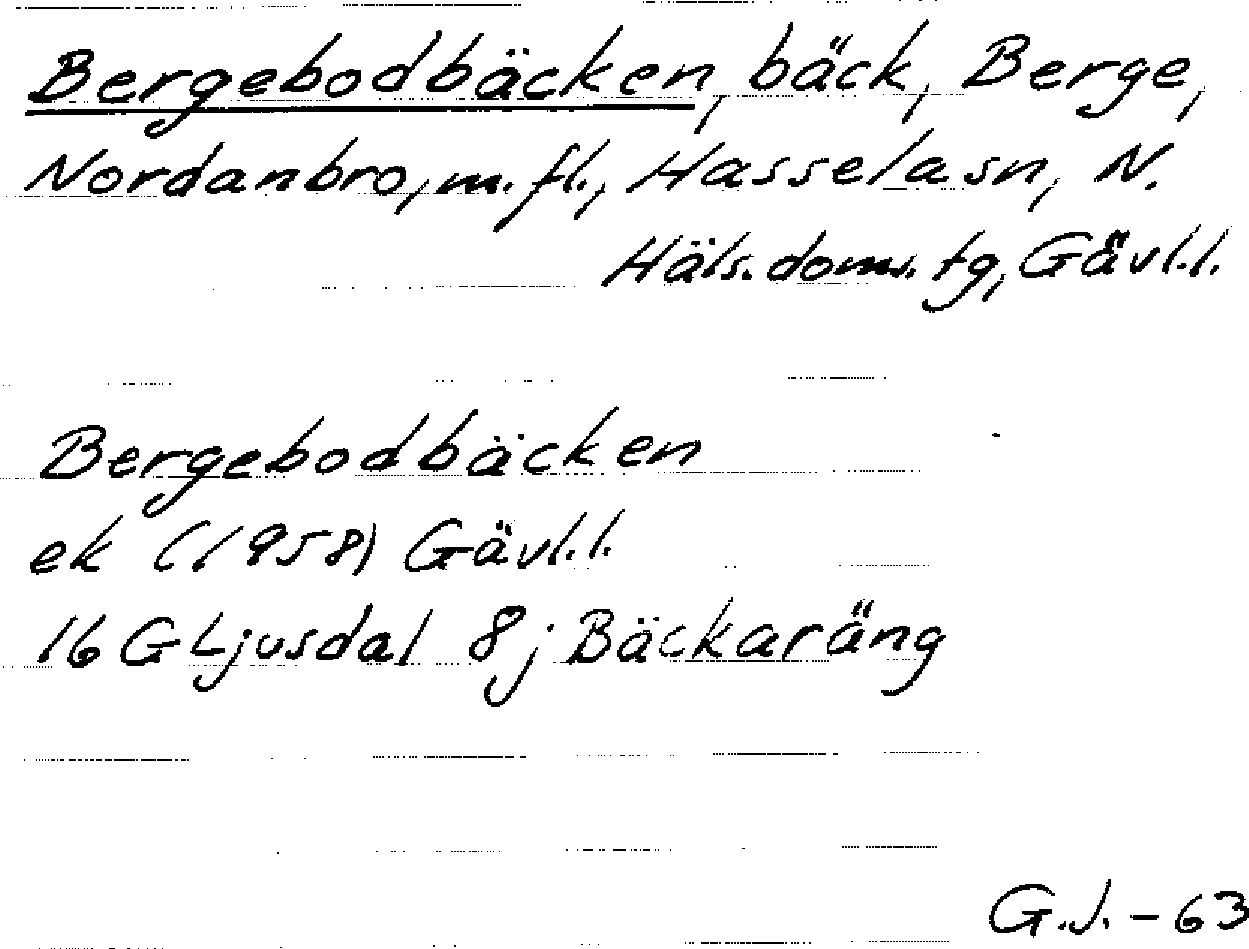 Bergebodbäcken, bäck, Berge,
Nordanbro, m. fl., Hassela sn, N.
Häls. doms. tg, Gävl. l.
Bergebodbäcken
ek (1958) Gävl. l.
16 G Ljusdal 8 j Bäckaräng
G. J. - 63